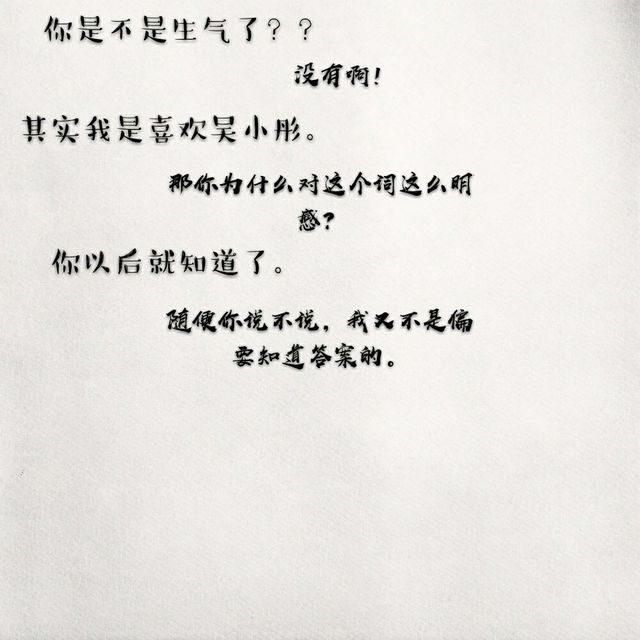 你是不是生气了？？
没有啊！
其实我是喜欢吴小彤。
那你为什么对这个词这么明
感？
你以后就知道了。
随便你说不说，我又不是偏
要知道答案的。